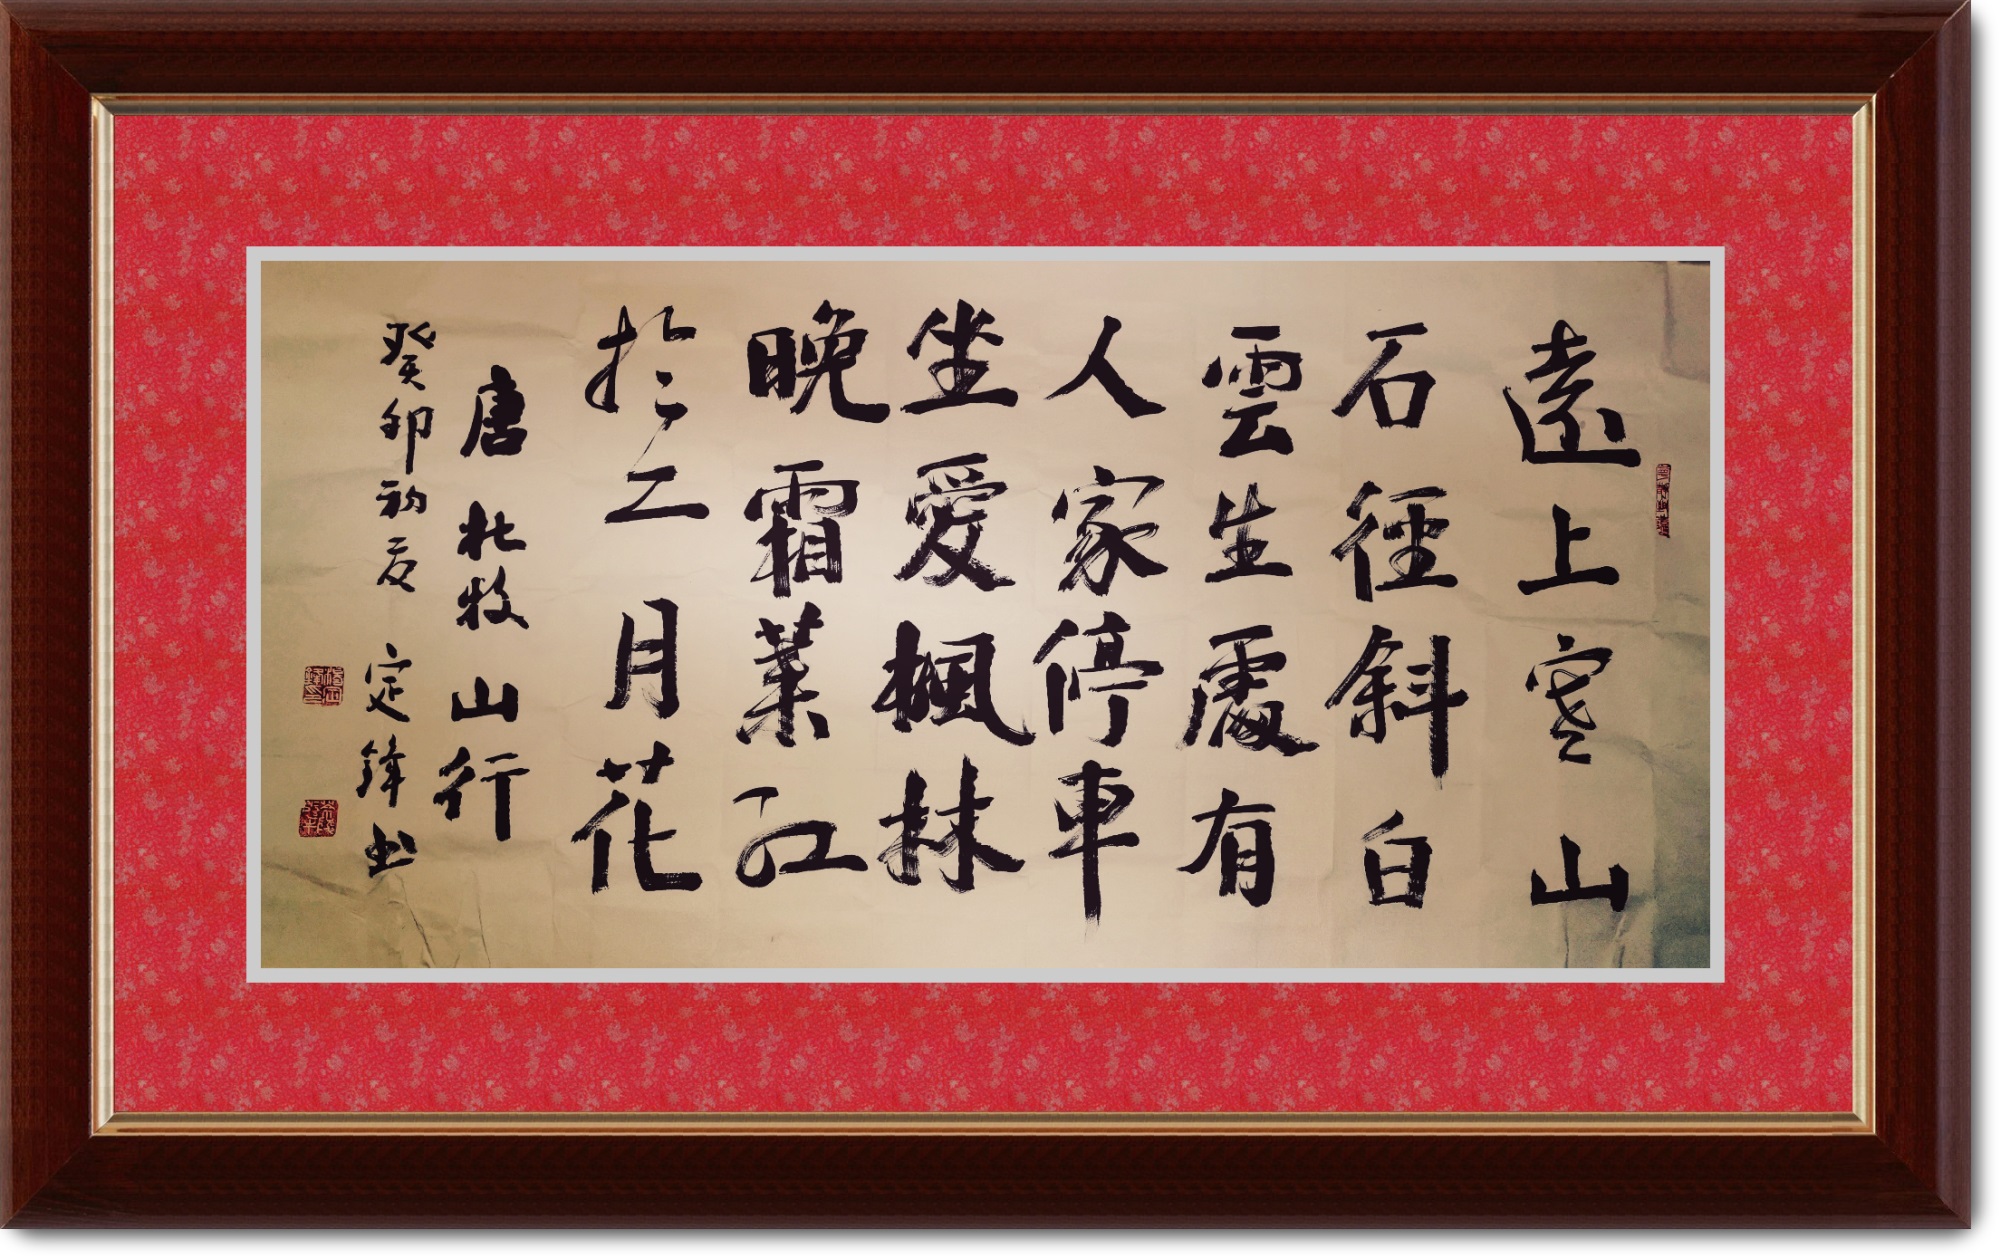 遠上寒山
石徑斜白
雲生處有
人家停車
坐愛楓林
晚霜葉紅
於二月花
唐杜牧山行
癸卯初夏定鋒书